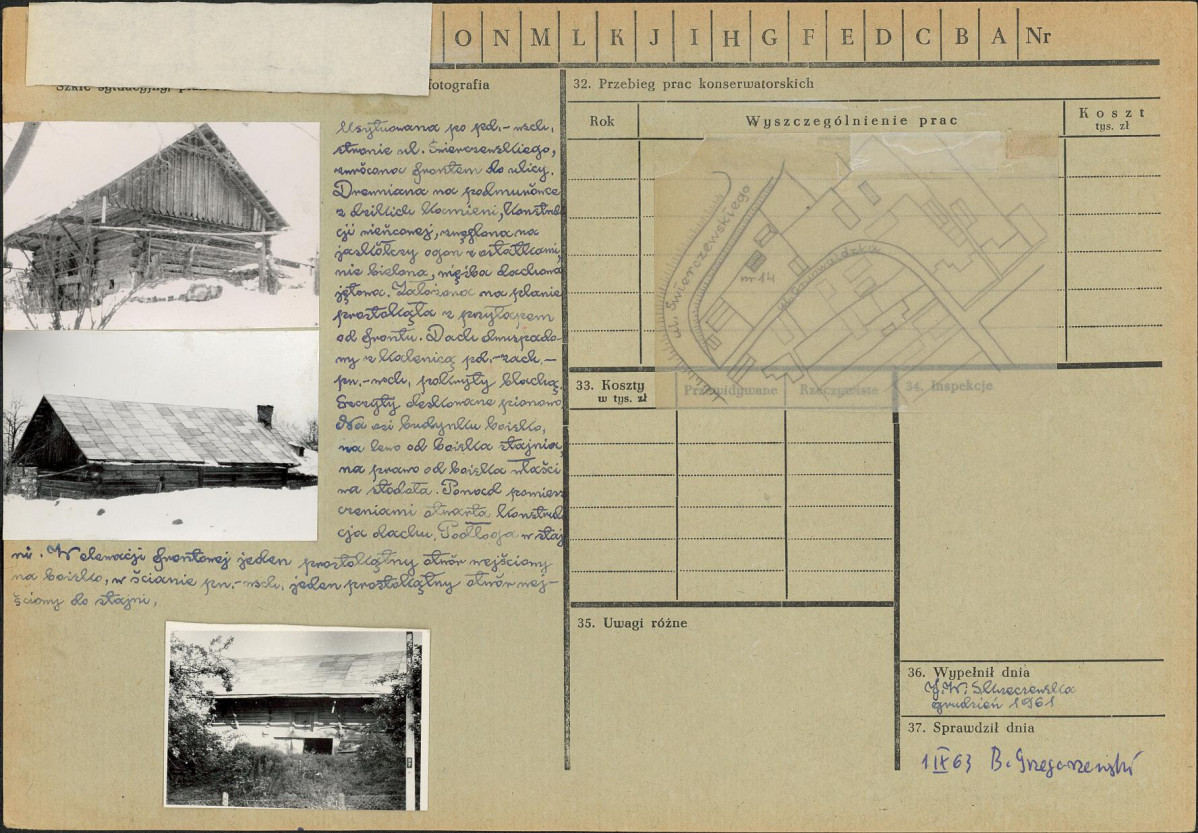 O N M L K J I H G F E D C B A Nr
fotografia
Usytuowana po pd.-wsch.
stronie ul. Świerczewskiego,
zwrócona frontem do ulicy.
Drewniana na podmurówce
z dzikich kamieni, konstruk
cji wieńcowej, węglona na
jaskółczy ogon z ostatkami,
nie bielona, więźba dachowa
jętkowa. Założona na planie
prostokąta z przyłapem
od frontu. Dach dwuspado-
wy z kalenicą pd.-zach.-
pn.-wsch, pokryty blachą.
Szczyty deskowane pionowo
Na osi budynku boisko,
na lewo od boiska stajnia,
na prawo od boiska właści
wa stodoła. Ponad pomiesz
czeniami otwarta konstruk
cja dachu. Podłoga w staj
ni. W elewacji frontowej jeden prostokątny otwór wejściowy
na boisko, w ścianie pn.-wsch. jeden prostokątny otwór wej-
ściowy do stajni,
32. Przebieg prac konserwatorskich
Rok
Wyszczególnienie prac
Koszt
tys. zł
ul. Świerczewskiego
nr 14
ul. Grunwaldzka
33. Koszty
w tys. zł
Przewidywane
Rzeczywiste
34. Inspekcje
35. Uwagi różne
36. Wypełnił dnia
grudzień 1961
37. Sprawdził dnia
1 IX 63 B.